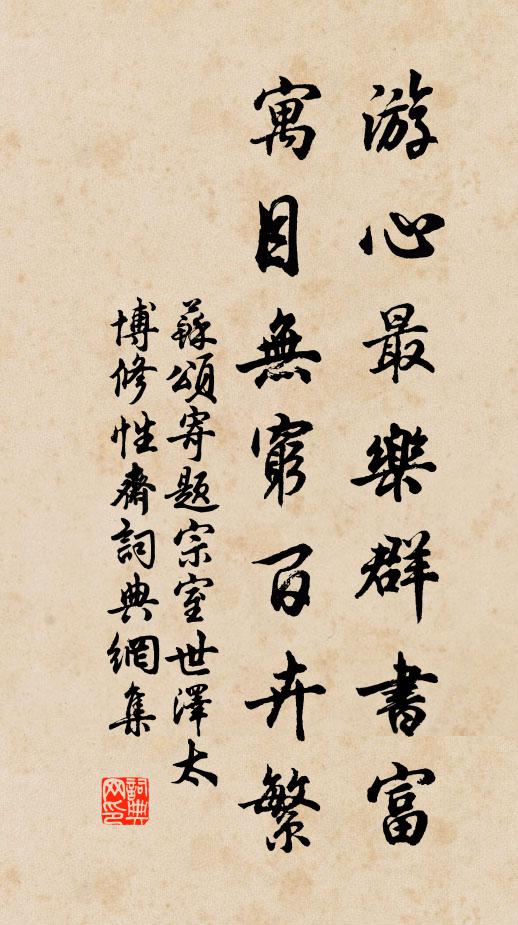 游心最樂群書富
寓目無窮百卉繁
蘇頌寄題宗室世澤太
博修性齋詞典網集
詞典
网印